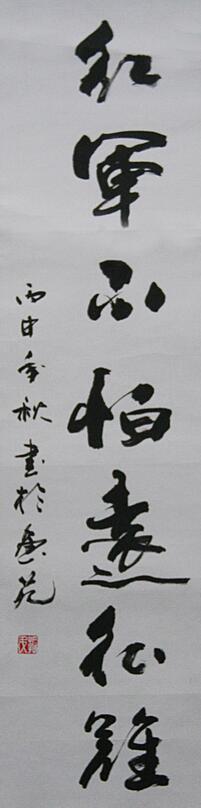 红军不怕远征难
丙申年秋书于